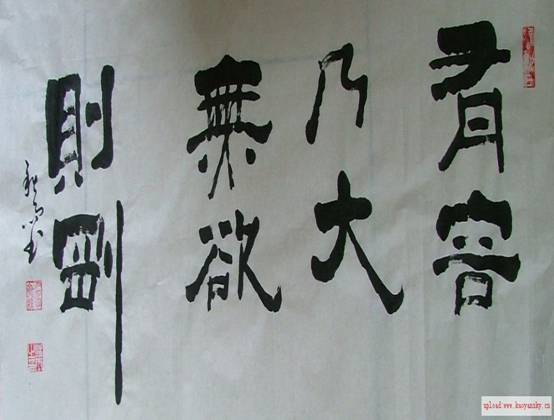 有容
乃大
無欲
則剛
upload.www.kaoyansky.cn